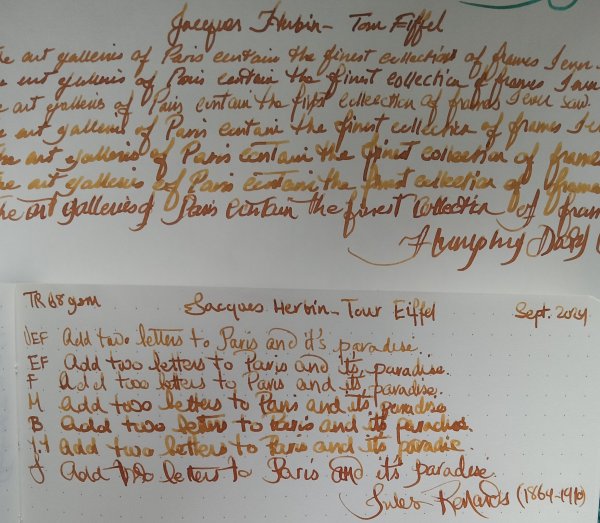 Jacques Herbin - Tour Eiffel
he art galleries of Paris contain the finest collection of frames I ever
e art galleries of Paris contain the finest collection of frames I ever
e art galleries of Paris contain the first collection of frames I ever saw.
e art galleries of Paris contain the finest collection of frames I ev
he art galleries of Paris contain the finest collection of frames
he art galleries of Paris contain the finest collection of frame
The art galleries of Paris contain the finest collection of fram
Humphry Davy (
TR 68gsm Jacques Herbin - Tour Eiffel Sept. 2024
UEF Add two letters to Paris and it's paradise.
EF Add two letters to Paris and its paradise.
F Add two letters to Paris and its paradise.
M Add two letters to Paris and its paradise
B Add two letters to Paris and its paradise.
Add two letters to Paris and its paradise.
J Add two letters to Paris and it's paradise.
Jules Renards (1864-1910)